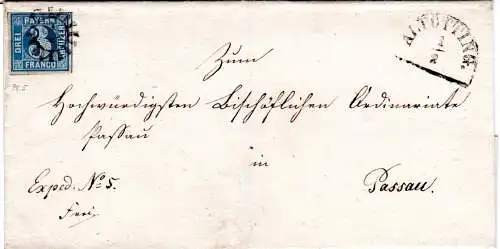 BAYERN
DREI
KREUZER
FRANCO
ALTÖTTING.
Zum
Hochwürdigsten Bischöflichen Ordinariate
Passau
in
Exped. No 5.
Passau.
Frei